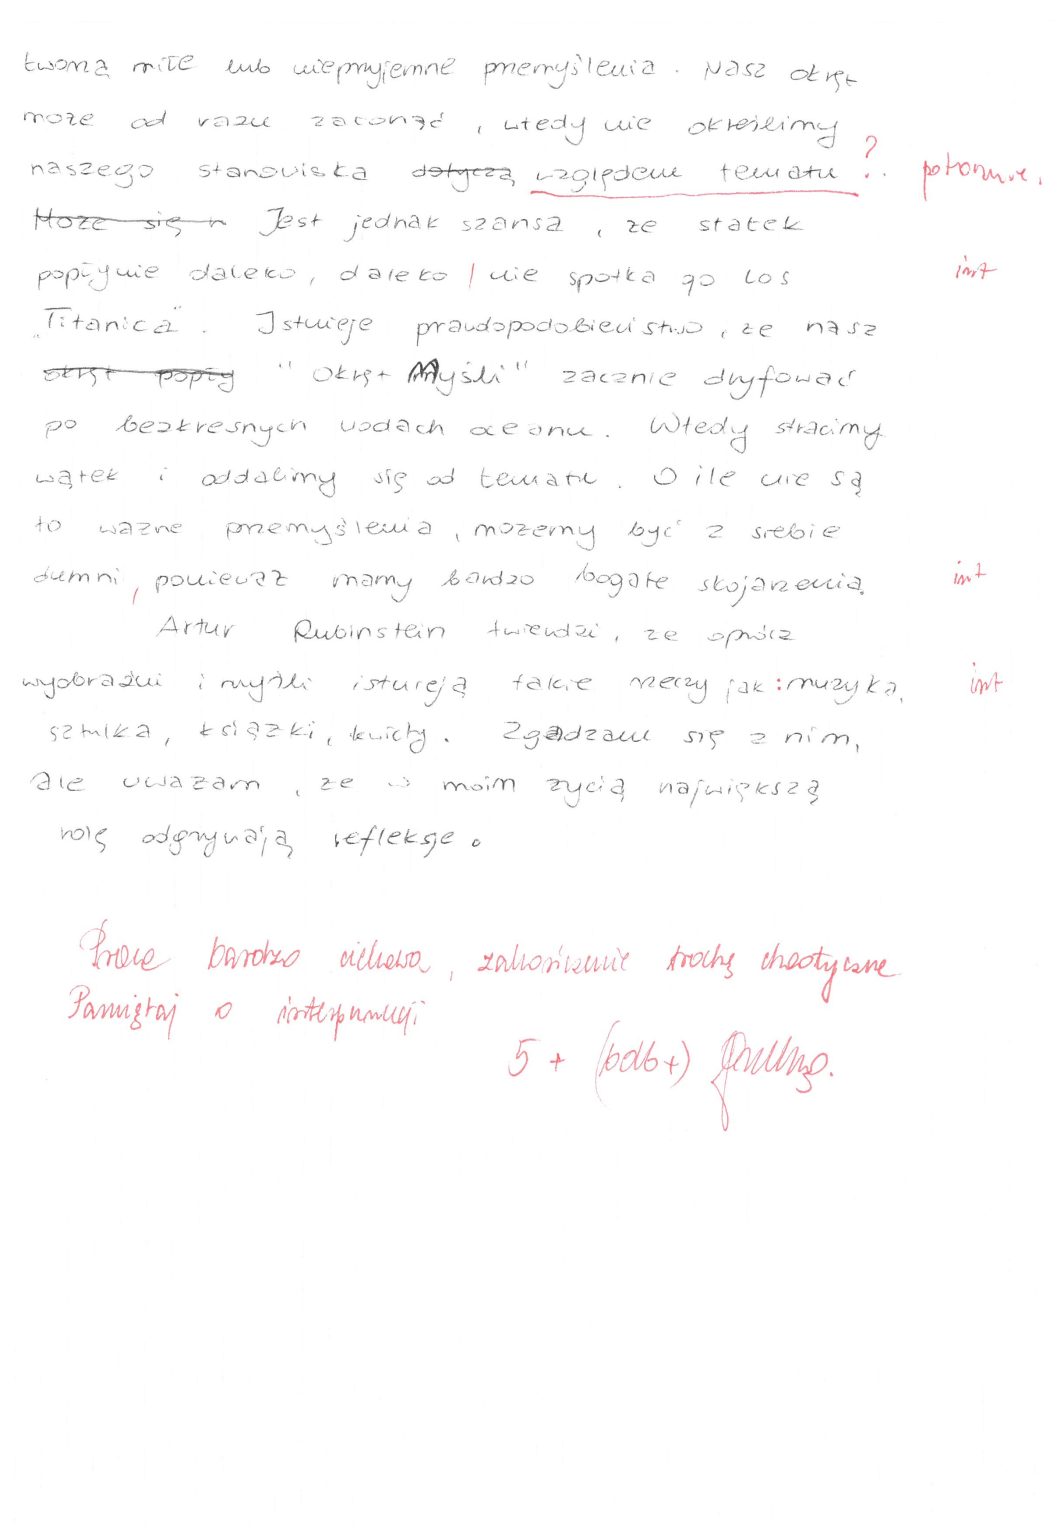 tworzą miłe lub nieprzyjemne przemyślenia. Nasz okręt
może od razu zatonąć, wtedy nie określimy
naszego stanowiska dotyczą względem tematu ?.
Może się n Jest jednak szansa, że statek
popłynie daleko, daleko / nie spotka go los int
„Titanica”. Istnieje prawdopodobieństwo, że nasz
okręt popły "Okręt Myśli" zacznie dryfować
po bezkresnych wodach oceanu. Wtedy stracimy
wątek i oddalimy się od tematu. O ile nie są
to ważne przemyślenia, możemy być z siebie
dumni, ponieważ mamy bardzo bogate skojarzenia. int
Artur Rubinstein twierdzi, że oprócz
wyobraźni i myśli istnieją takie rzeczy jak : muzyka, int
sztuka, książki, kwiaty. Zgadzam się z nim,
ale uważam, że w moim życią największą
rolę odgrywają refleksje.
Praca bardzo ciekawa, zakończenie trochę chaotyczne
Pamiętaj o interpunkcji
5 + (bdb+)